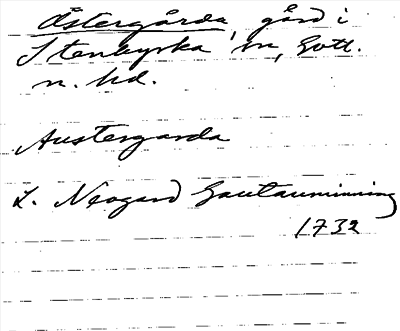 Östergårda, gård i
Stenkyrka sn, Gotl.
n. hd.
Austergarda
L. Neogard Gautauminning
1732